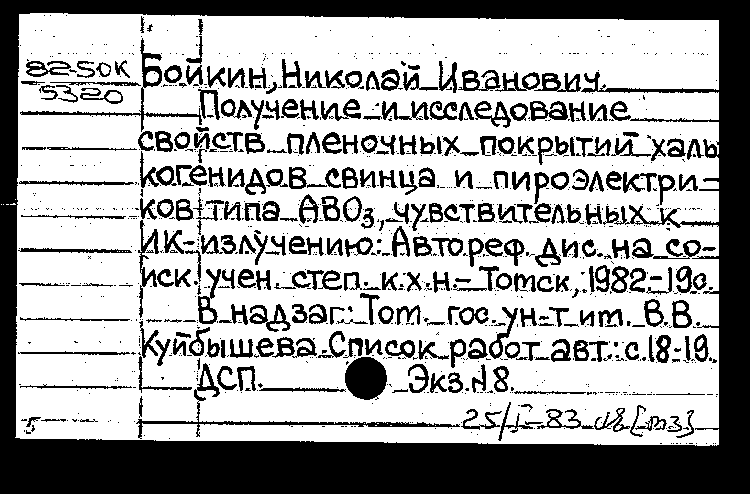 82-50К
5320
Бойкин, Николай Иванович.
Получение и исследование
свойств пленочных покрытий халь
когенидов свинца и пироэлектри-
ков типа АВО3, чувствительных к
ИК-излучению: Автореф. дис. на со-
иск. учен. степ. к.х.н.- Томск, 1982.-19с.
В надзаг.: Том. гос. ун-т им. В.В.
Куйбышева. Список работ авт.: с.18-19.
ДСП. Экз.№8.
25/I-83
5